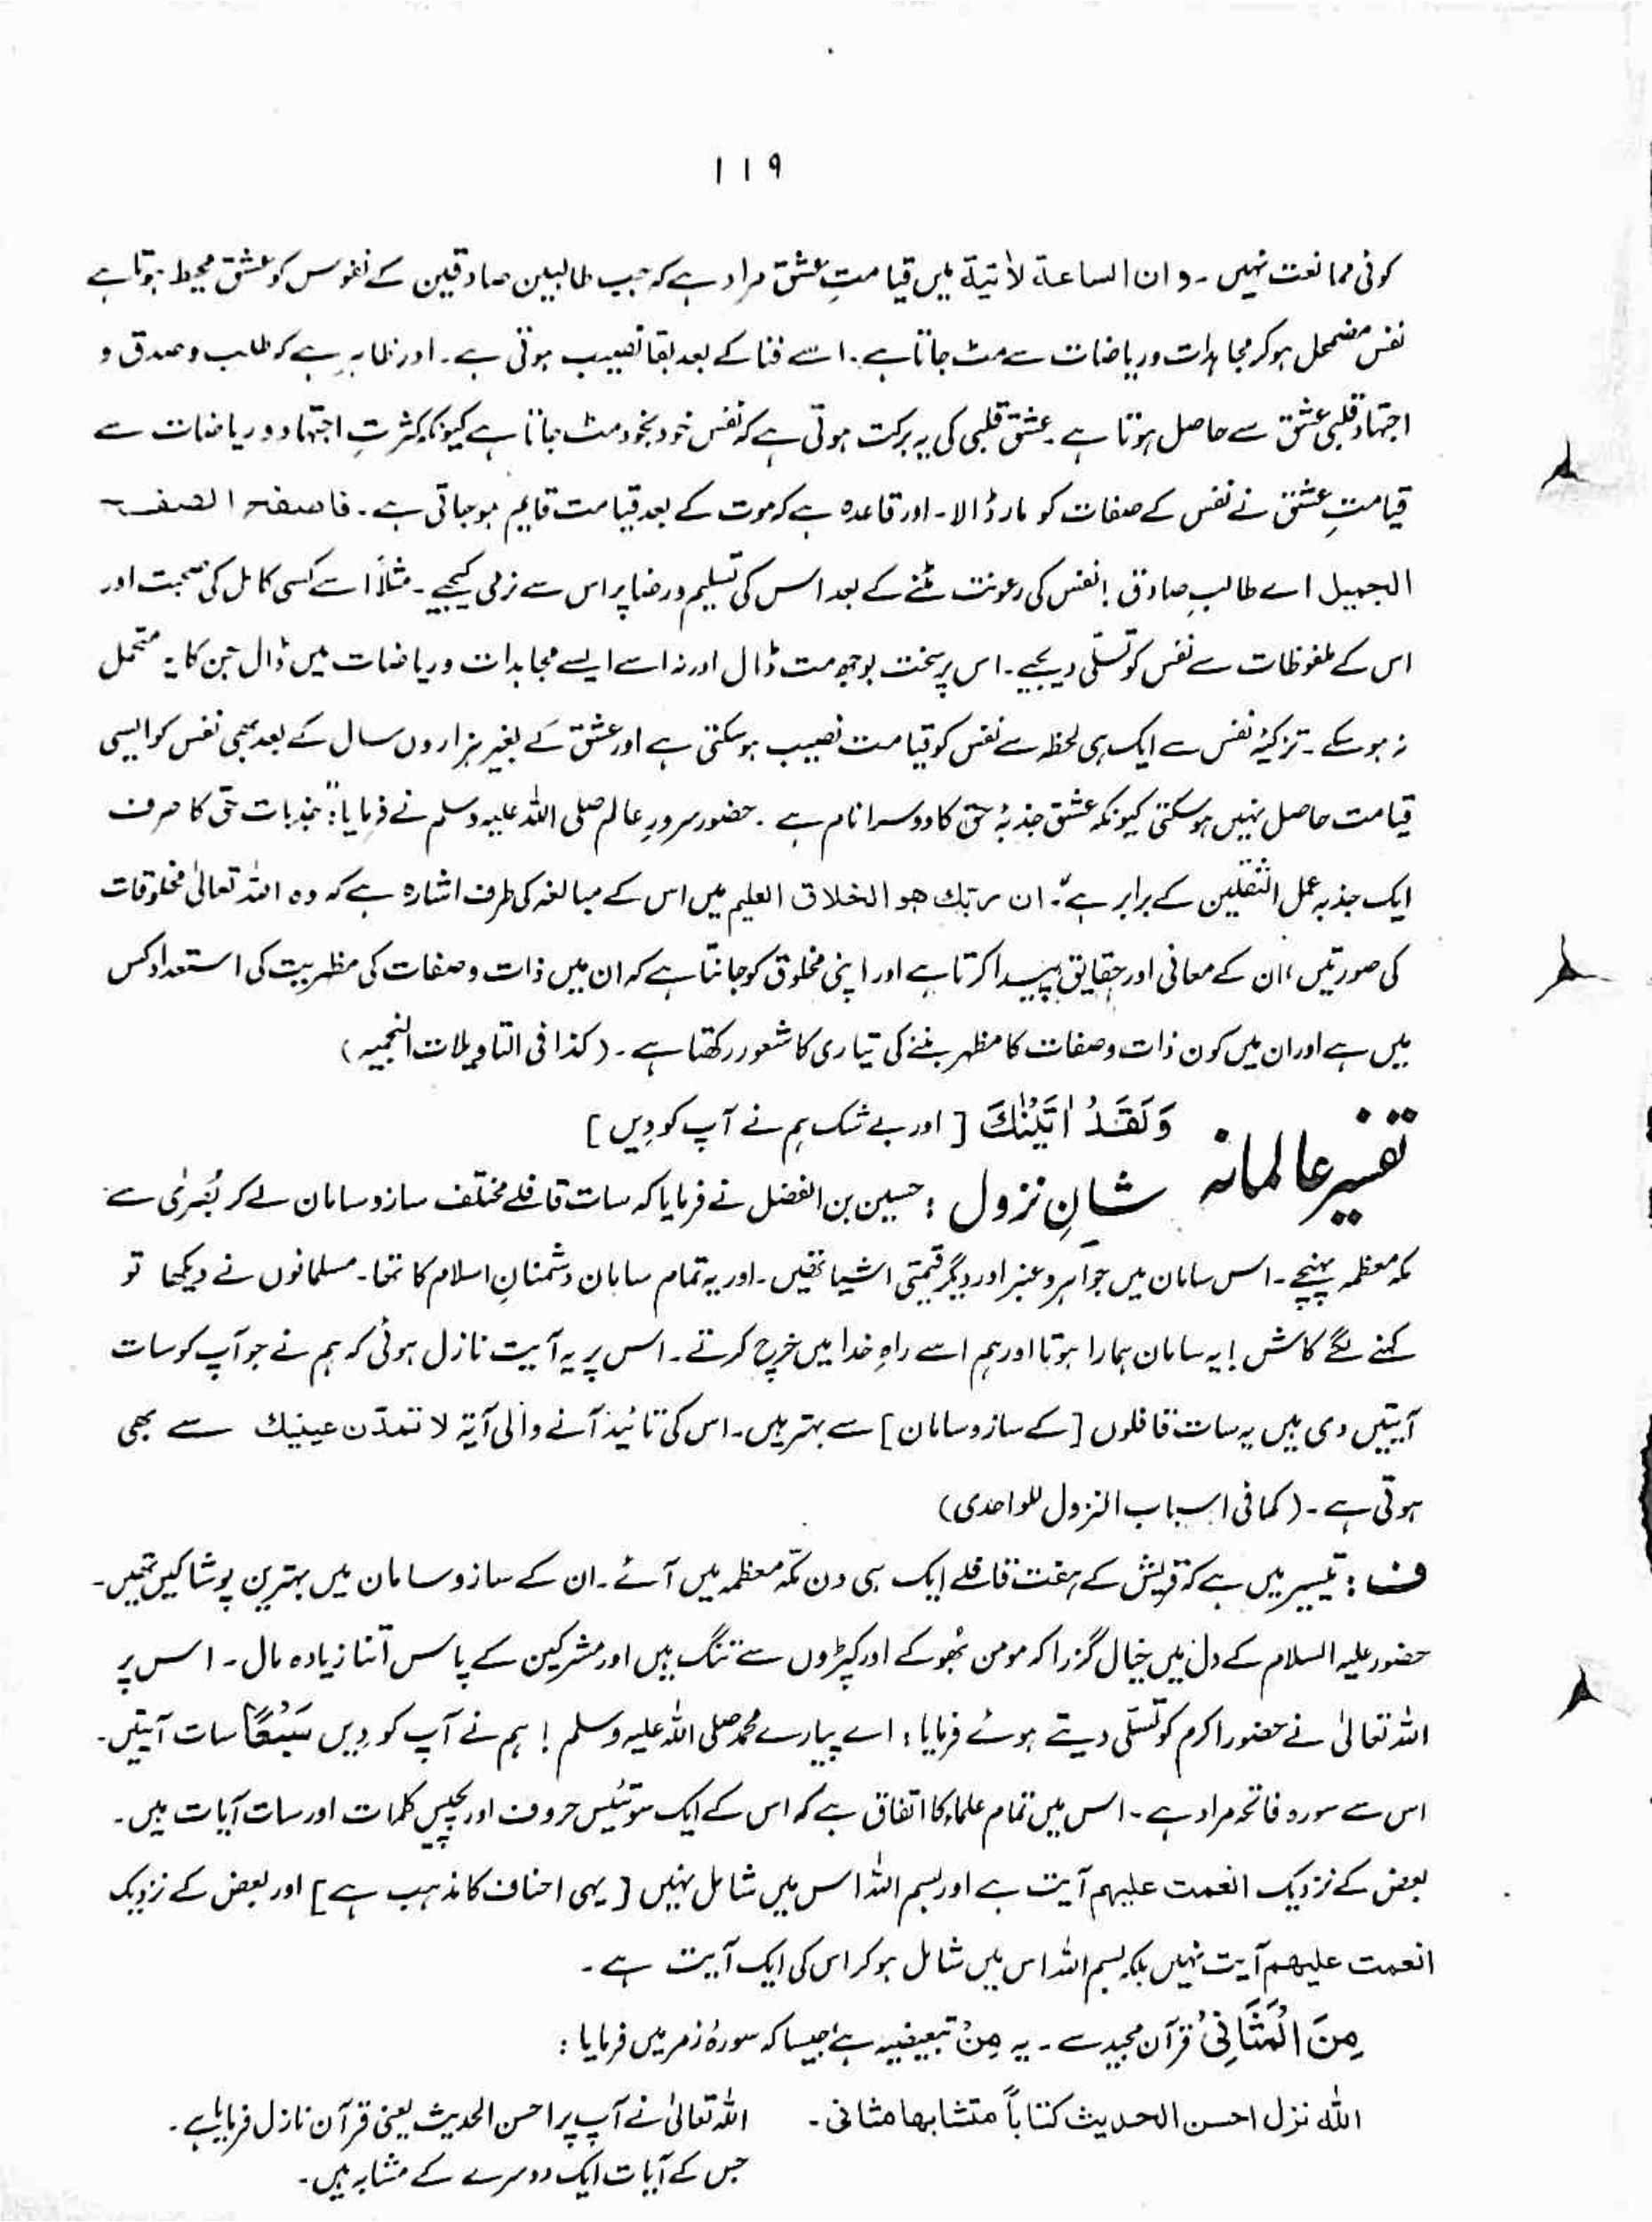 ۱۱۹
کوئی ممانعت نہیں ۔ و ان الساعۃ لاٰتیۃ میں قیامتِ عشق مراد ہے کہ جب طالبین صادقین کے نفوس کو عشق محیط ہوتا ہے
نفس مضمحل ہو کر مجاہدات و ریاضات سے مٹ جاتا ہے ۔ اسے فنا کے بعد بقا نصیب ہوتی ہے ۔ اور ظاہر ہے کہ طلب و صدق و
اجتہاد قلبی عشق سے حاصل ہوتا ہے ۔ عشق قلبی کی یہ برکت ہوتی ہے کہ نفس خود بخود مٹ جاتا ہے کیونکہ کثرتِ اجتہاد و ریاضات سے
قیامتِ عشق نے نفس کے صفات کو مار ڈالا ۔ اور قاعدہ ہے کہ موت کے بعد قیامت قایم ہو جاتی ہے ۔ فاصفح الصفح
الجمیل اے طالبِ صادق ! نفس کی رعونت مٹنے کے بعد اس کی تسلیم و رضا پر اس سے نرمی کیجیے ۔ مثلاً اسے کسی کامل کی صحبت اور
اس کے ملفوظات سے نفس کو تسلّی دیجیے ۔ اس پر سخت بوجھ مت ڈال اور نہ اسے ایسے مجاہدات و ریاضات میں ڈال جن کا یہ متحمل
نہ ہو سکے ۔ تزکیۂ نفس سے ایک ہی لحظہ سے نفس کو قیامت نصیب ہو سکتی ہے اور عشق کے بغیر ہزاروں سال کے بعد بھی نفس کو ایسی
قیامت حاصل نہیں ہو سکتی کیونکہ عشق جذبۂ حق کا دوسرا نام ہے ۔ حضور سرورِ عالم صلی اللہ علیہ وسلم نے فرمایا : "جذبات حق کا صرف
ایک جذبہ عمل الثقلین کے برابر ہے" ۔ ان ربّك هو الخلاق العلیم میں اس کے مبالغہ کی طرف اشارہ ہے کہ وہ اللہ تعالیٰ مخلوقات
کی صورتیں ، ان کے معانی اور حقایق پیدا کرتا ہے اور اپنی مخلوق کو جانتا ہے کہ ان میں ذات و صفات کی مظہریت کی استعداد کس
میں ہے اور ان میں کون ذات و صفات کا مظہر بننے کی تیاری کا شعور رکھتا ہے ۔ (کذا فی التاویلات النجمیہ)
تفسیر عالمانہ وَلَقَدْ اٰتَیْنٰكَ [ اور بے شک ہم نے آپ کو دِیں ]
شانِ نزول : حسین بن الفضل نے فرمایا کہ سات قافلے مختلف ساز و سامان لے کر بُصرٰی سے
مکہ معظمہ پہنچے ۔ اس سامان میں جواہر و عنبر اور دیگر قیمتی اشیا تھیں ۔ اور یہ تمام سامان دشمنانِ اسلام کا تھا ۔ مسلمانوں نے دیکھا تو
کہنے لگے کاش ! یہ سامان ہمارا ہوتا اور ہم اسے راہِ خدا میں خرچ کرتے ۔ اس پر یہ آیت نازل ہوئی کہ ہم نے جو آپ کو سات
آیتیں دی ہیں یہ سات قافلوں [ کے ساز و سامان ] سے بہتر ہیں ۔ اس کی تائید آنے والی آیۃ لا تمدّن عینیك سے بھی
ہوتی ہے ۔ (کما فی اسباب النزول للواحدی)
ف : تیسیر میں ہے کہ قریش کے ہفت قافلے ایک ہی دن مکّہ معظمہ میں آئے ۔ ان کے ساز و سامان میں بہترین پوشاکیں تھیں ۔
حضور علیہ السلام کے دل میں خیال گزرا کہ مومن بُھوکے اور کپڑوں سے تنگ ہیں اور مشرکین کے پاس اتنا زیادہ مال ۔ اس پر
اللہ تعالیٰ نے حضور اکرم کو تسلّی دیتے ہوئے فرمایا : اے پیارے محمد صلی اللہ علیہ وسلم ! ہم نے آپ کو دِیں سَبْعًا سات آیتیں ۔
اس سے سورہ فاتحہ مراد ہے ۔ اس میں تمام علماء کا اتفاق ہے کہ اس کے ایک سو تئیس حروف اور پچیس کلمات اور سات آیات ہیں ۔
بعض کے نزدیک انعمت علیہم آیت ہے اور بسم اللہ اس میں شامل نہیں [ یہی احناف کا مذہب ہے ] اور بعض کے نزدیک
انعمت علیهم آیت نہیں بلکہ بسم اللہ اس میں شامل ہو کر اس کی ایک آیت ہے ۔
مِنَ الْمَثَانِیْ قرآن مجید سے ۔ یہ مِنْ تبعیضیہ ہے جیسا کہ سورۂ زمر میں فرمایا :
اللہ نزل احسن الحدیث کتاباً متشابها مثانی ۔ اللہ تعالیٰ نے آپ پر احسن الحدیث یعنی قرآن نازل فرمایا ہے ۔
جس کے آیات ایک دوسرے کے مشابہ ہیں ۔